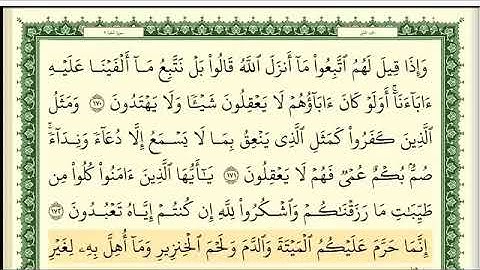 وَإِذَا قِيلَ لَهُمُ ٱتَّبِعُوا۟ مَآ أَنزَلَ ٱللَّهُ قَالُوا۟ بَلْ نَتَّبِعُ مَآ أَلْفَيْنَا عَلَيْهِ
ءَابَآءَنَآۗ أَوَلَوْ كَانَ ءَابَآؤُهُمْ لَا يَعْقِلُونَ شَيْـًٔا وَلَا يَهْتَدُونَ ١٧٠ وَمَثَلُ
ٱلَّذِينَ كَفَرُوا۟ كَمَثَلِ ٱلَّذِى يَنْعِقُ بِمَا لَا يَسْمَعُ إِلَّا دُعَآءً وَنِدَآءًۚ
صُمٌّۢ بُكْمٌ عُمْىٌ فَهُمْ لَا يَعْقِلُونَ ١٧١ يَـٰٓأَيُّهَا ٱلَّذِينَ ءَامَنُوا۟ كُلُوا۟ مِن
طَيِّبَـٰتِ مَا رَزَقْنَـٰكُمْ وَٱشْكُرُوا۟ لِلَّهِ إِن كُنتُمْ إِيَّاهُ تَعْبُدُونَ ١٧٢
إِنَّمَا حَرَّمَ عَلَيْكُمُ ٱلْمَيْتَةَ وَٱلدَّمَ وَلَحْمَ ٱلْخِنزِيرِ وَمَآ أُهِلَّ بِهِۦ لِغَيْرِ